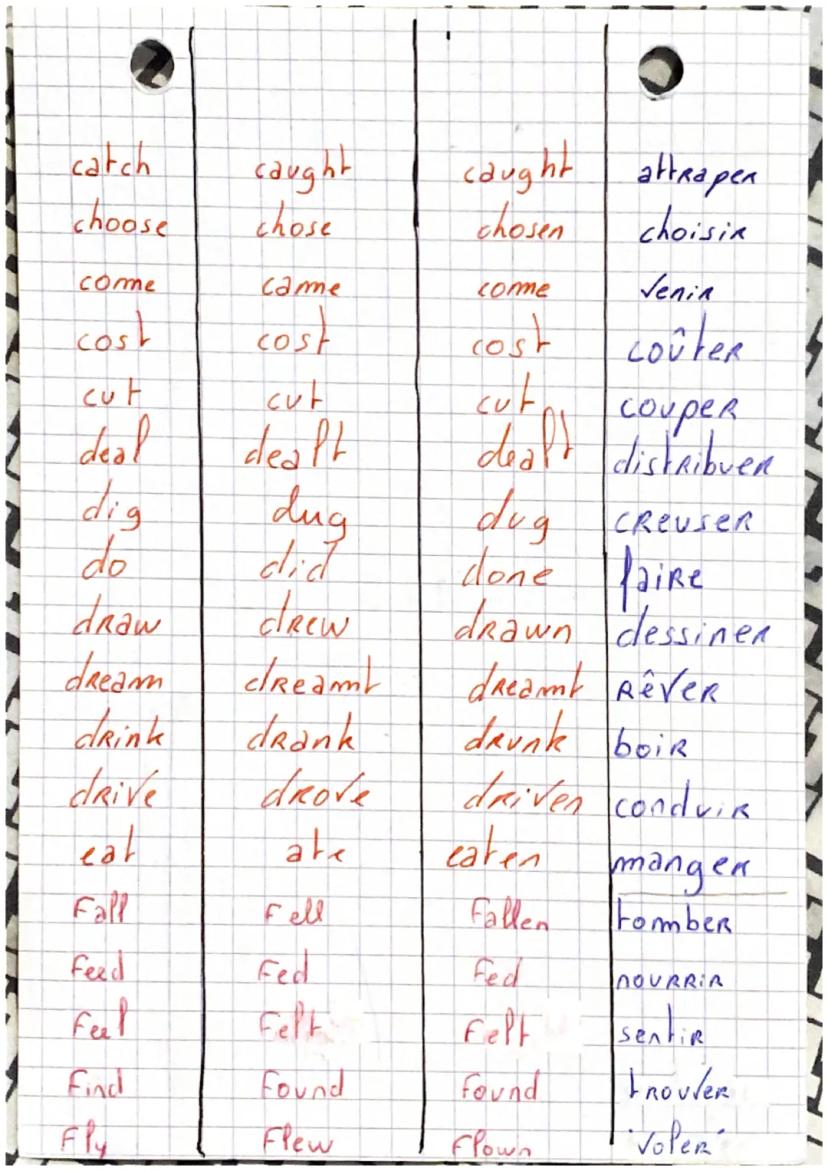 catch caught caught attraper
choose chose chosen choisir
come came come venir
cost cost cost coûter
cut cut cut couper
deal dealt dealt distribuer
dig dug dug creuser
do did done faire
draw drew drawn dessiner
dream dreamt dreamt rêver
drink drank drunk boir
drive drove driven conduir
eat ate eaten manger
Fall Fell Fallen tomber
Feed Fed Fed nourrir
Feel Felt Felt sentir
Find Found Found trouver
Fly Flew Flown voler